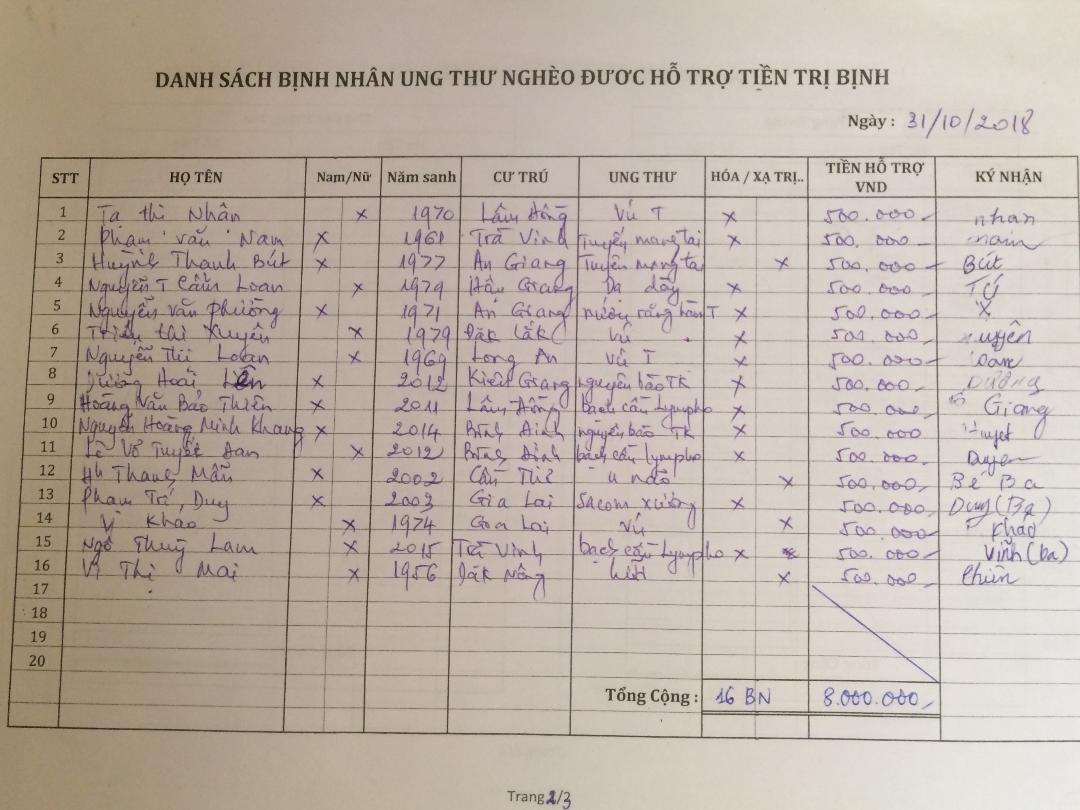 DANH SÁCH BỊNH NHÂN UNG THƯ NGHÈO ĐƯƠC HỖ TRỢ TIỀN TRỊ BỊNH
Ngày : 31/10/2018
STT HỌ TÊN Nam/Nữ Năm sanh CƯ TRÚ UNG THƯ HÓA / XẠ TRỊ.. TIỀN HỖ TRỢ VND KÝ NHẬN
1 Tạ thị Nhân x 1970 Lâm Đồng Vú T x 500.000 nhan
2 Phạm văn Nam x 1961 Trà Vinh Tuyến mang tai x 500.000 nam
3 Huỳnh Thanh Bút x 1977 An Giang Tuyến mang tai x 500.000 Bút
4 Nguyễn T Cẩm Loan x 1979 Hậu Giang Dạ dầy x 500.000 Tý
5 Nguyễn văn Phường x 1971 An Giang T x 500.000 X
6 thị Xuyên x 1979 Đăk Lăk Vú x 500.000 xuyên
7 Nguyễn Thị Loan x 1969 Long An Vú T x 500.000 Loan
8 Dương Hoài x 2012 Kiên Giang nguyên bào TK x 500.000 Dương
9 Hoàng Văn Bảo Thiên x 2011 Lâm Đồng bạch cầu lympho x 500.000 Giang
10 Nguyễn Hoàng Minh Khang x 2014 Bình Định nguyên bào TK x 500.000
11 Lê Võ Tuyết Đan x 2012 Bình Định bạch cầu lympho x 500.000 Duyen
12 Thang Mẫn x 2002 Cần Thơ u não x 500.000 Be Ba
13 Phạm Trí Duy x 2003 Gia Lai Sacom xương x 500.000 Duy (Ba)
14 Vi Khào x 1974 Gia Lai vú x 500.000 Khao
15 Ngô Thuỳ Lam x 2015 Trà Vinh bạch cầu lympho x x 500.000 Vĩnh (ba)
16 Vi Thị Mai x 1956 Đăk Nông x 500.000
17
18
19
20
Tổng Cộng : 16 BN 8.000.000
Trang 2/3